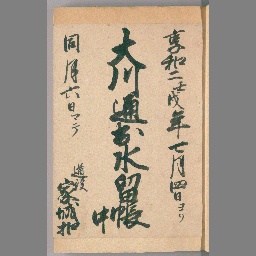 享和二壬戌年七月四日ヨリ
大川通出水留帳
中
同月六日マテ